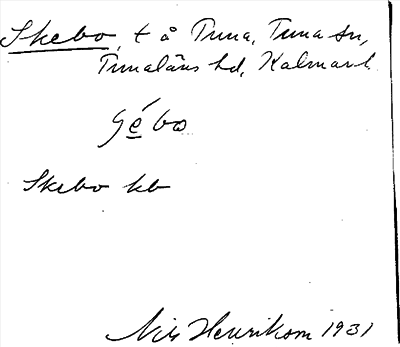 Skebo, t å Tuna, Tuna sn,
Tunaläns hd, Kalmar l.
Sjé̱bo
Skebo kb
Nils Henrikson 1931